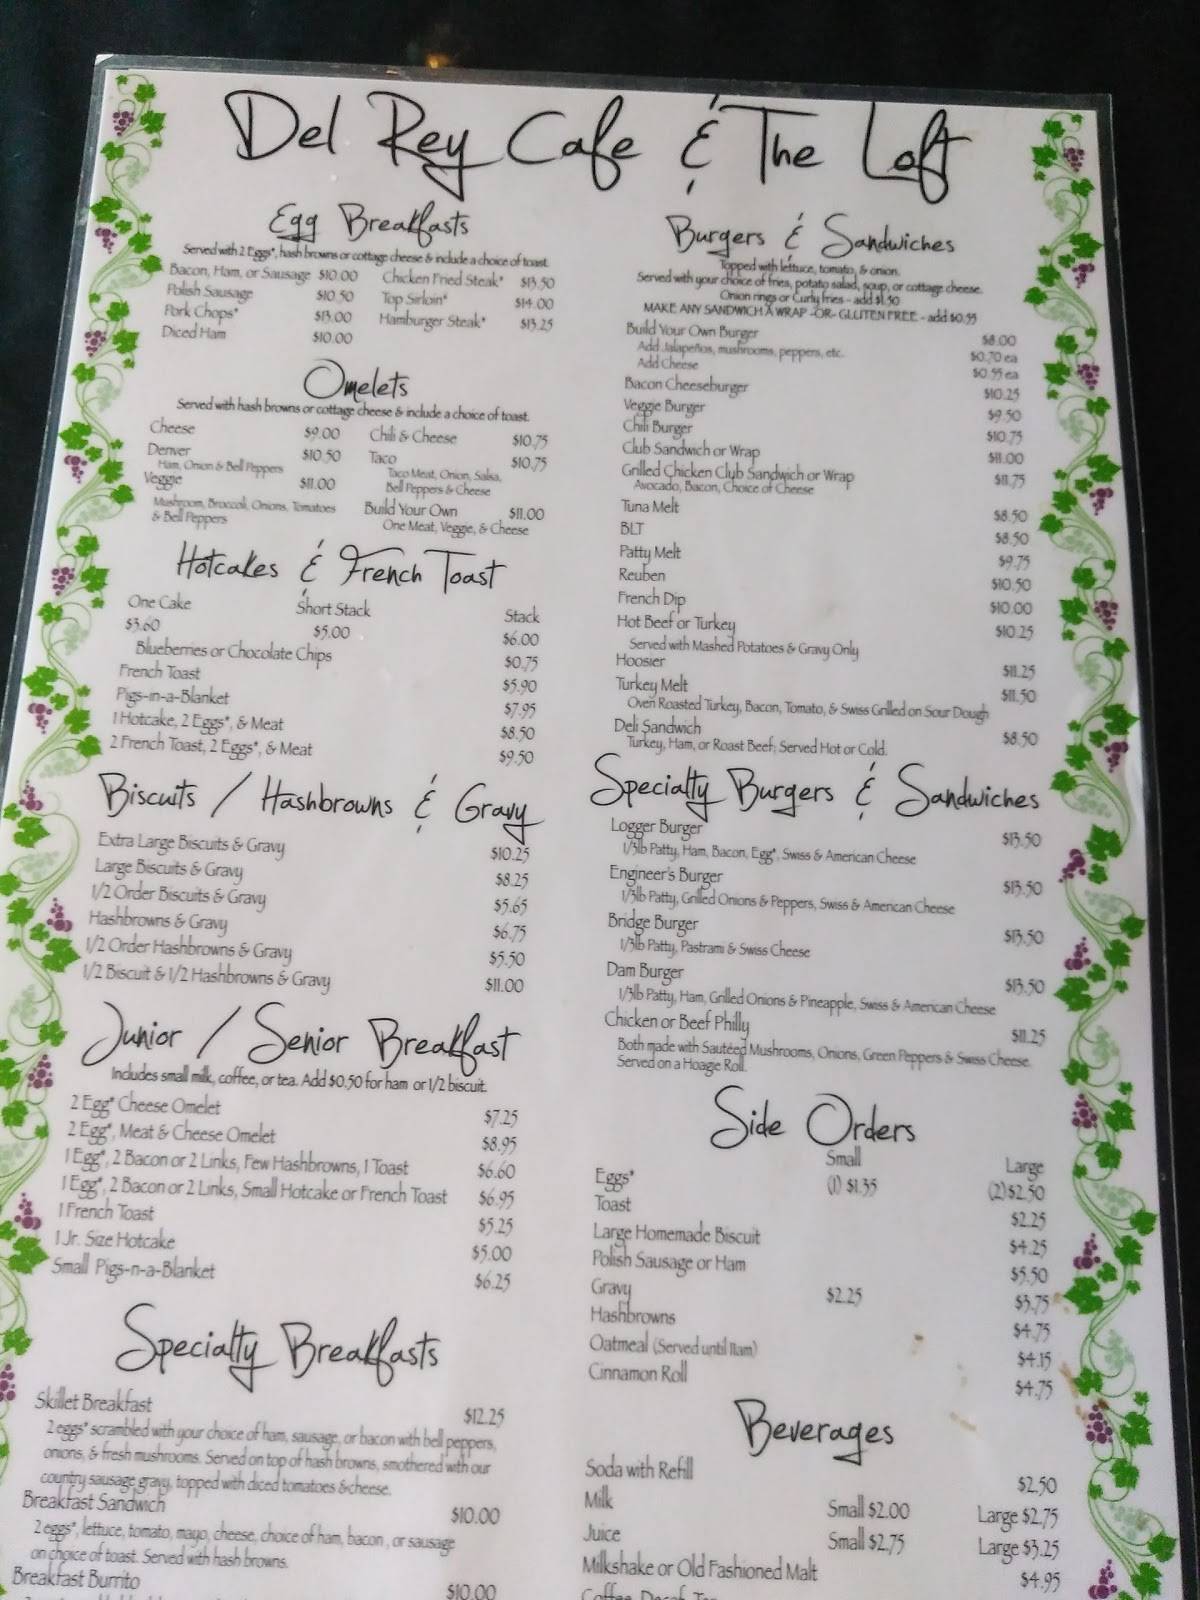 Del Rey Cafe & The Loft
Egg Breakfasts
Served with 2 Eggs*, hash browns or cottage cheese & include a choice of toast.
Bacon, Ham, or Sausage $10.00
Polish Sausage $10.50
Pork Chops* $13.00
Diced Ham $10.00
Chicken Fried Steak* $13.50
Top Sirloin* $14.00
Hamburger Steak* $13.25
Omelets
Served with hash browns or cottage cheese & include a choice of toast.
Cheese $9.00
Denver $10.50
Ham, Onion & Bell Peppers
Veggie $11.00
Mushroom, Broccoli, Onions, Tomatoes
& Bell Peppers
Chili & Cheese $10.75
Taco $10.75
Taco Meat, Onion, Salsa,
Bell Peppers & Cheese
Build Your Own $11.00
One Meat, Veggie, & Cheese
Hotcakes & French Toast
One Cake Short Stack Stack
$3.60 $5.00 $6.00
Blueberries or Chocolate Chips $0.75
French Toast $5.90
Pigs-in-a-Blanket $7.95
1 Hotcake, 2 Eggs*, & Meat $8.50
2 French Toast, 2 Eggs*, & Meat $9.50
Biscuits / Hashbrowns & Gravy
Extra Large Biscuits & Gravy $10.25
Large Biscuits & Gravy $8.25
1/2 Order Biscuits & Gravy $5.65
Hashbrowns & Gravy $6.75
1/2 Order Hashbrowns & Gravy $5.50
1/2 Biscuit & 1/2 Hashbrowns & Gravy $11.00
Junior / Senior Breakfast
Includes small milk, coffee, or tea. Add $0.50 for ham or 1/2 biscuit.
2 Egg* Cheese Omelet $7.25
2 Egg*, Meat & Cheese Omelet $8.95
1 Egg*, 2 Bacon or 2 Links, Few Hashbrowns, 1 Toast $6.60
1 Egg*, 2 Bacon or 2 Links, Small Hotcake or French Toast $6.95
1 French Toast $5.25
1 Jr. Size Hotcake $5.00
Small Pigs-n-a-Blanket $6.25
Specialty Breakfasts
Skillet Breakfast $12.25
2 eggs* scrambled with your choice of ham, sausage, or bacon with bell peppers,
onions, & fresh mushrooms. Served on top of hash browns, smothered with our
country sausage gravy, topped with diced tomatoes &cheese.
Breakfast Sandwich $10.00
2 eggs*, lettuce, tomato, mayo, cheese, choice of ham, bacon , or sausage
on choice of toast. Served with hash browns.
Breakfast Burrito $10.00
Burgers & Sandwiches
Topped with lettuce, tomato, & onion.
Served with your choice of fries, potato salad, soup, or cottage cheese.
Onion rings or Curly fries - add $1.50
MAKE ANY SANDWICH A WRAP -OR- GLUTEN FREE - add $0.55
Build Your Own Burger $8.00
Add Jalapeños, mushrooms, peppers, etc. $0.70 ea
Add Cheese $0.55 ea
Bacon Cheeseburger $10.25
Veggie Burger $9.50
Chili Burger $10.75
Club Sandwich or Wrap $11.00
Grilled Chicken Club Sandwich or Wrap $11.75
Avocado, Bacon, Choice of Cheese
Tuna Melt $8.50
BLT $8.50
Patty Melt $9.75
Reuben $10.50
French Dip $10.00
Hot Beef or Turkey $10.25
Served with Mashed Potatoes & Gravy Only
Hoosier $11.25
Turkey Melt $11.50
Oven Roasted Turkey, Bacon, Tomato, & Swiss Grilled on Sour Dough
Deli Sandwich $8.50
Turkey, Ham, or Roast Beef; Served Hot or Cold.
Specialty Burgers & Sandwiches
Logger Burger $13.50
1/3lb Patty, Ham, Bacon, Egg*, Swiss & American Cheese
Engineer's Burger $13.50
1/3lb Patty, Grilled Onions & Peppers, Swiss & American Cheese
Bridge Burger $13.50
1/3lb Patty, Pastrami & Swiss Cheese
Dam Burger $13.50
1/3lb Patty, Ham, Grilled Onions & Pineapple, Swiss & American Cheese
Chicken or Beef Philly $11.25
Both made with Sautéed Mushrooms, Onions, Green Peppers & Swiss Cheese.
Served on a Hoagie Roll.
Side Orders
Small Large
Eggs* (1) $1.35 (2)$2.50
Toast $2.25
Large Homemade Biscuit $4.25
Polish Sausage or Ham $5.50
Gravy $2.25 $3.75
Hashbrowns $4.75
Oatmeal (Served until 11am) $4.15
Cinnamon Roll $4.75
Beverages
Soda with Refill $2.50
Milk Small $2.00 Large $2.75
Juice Small $2.75 Large $3.25
Milkshake or Old Fashioned Malt $4.95